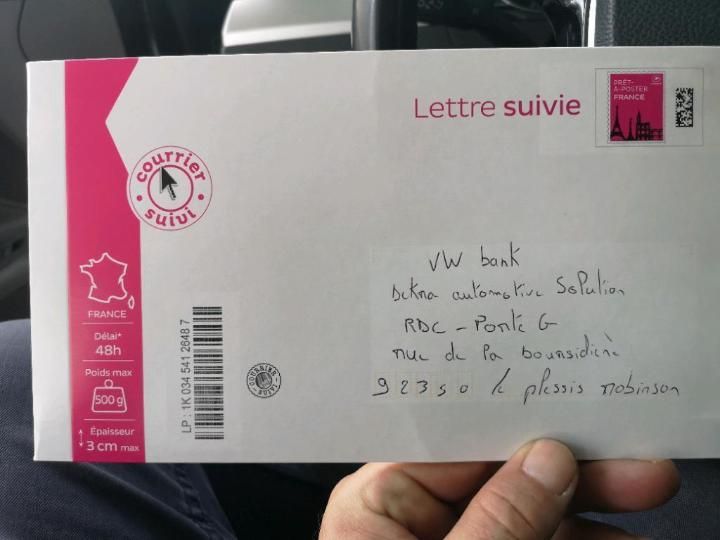 Lettre suivie
PRÊT-
À-POSTER
FRANCE
courrier
suivi
VW bank
Dekra automotive Solution
RDC - Porte G
rue de la boursidière
92350 le plessis robinson
FRANCE
Délai*
48h
Poids max
500 g
Épaisseur
3 cm max
LP : 1K 034 541 2648 7
COURRIER
SUIVI